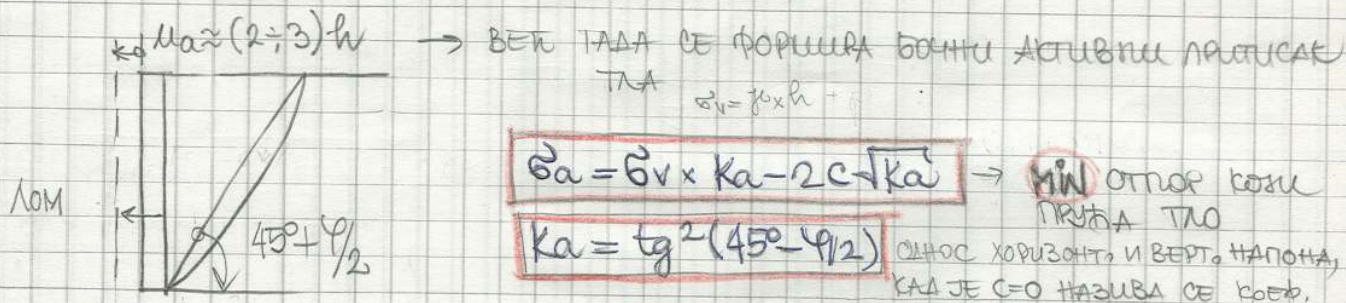 Ua≈(2÷3)h → ВЕЋ ТАДА СЕ ФОРМИРА БОЧНИ АКТИВНИ ПРИТИСАК
ТЛА
σv=γ×h
σa = σv × Ka - 2c√Ka → MIN ОТПОР КОЈИ
ПРУЖА ТЛО
ЛОМ
45°+φ/2
Ka = tg²(45°-φ/2) ОДНОС ХОРИЗОНТ. И ВЕРТ. НАПОНА,
КАД ЈЕ C=0 НАЗИВА СЕ КОЕФ.